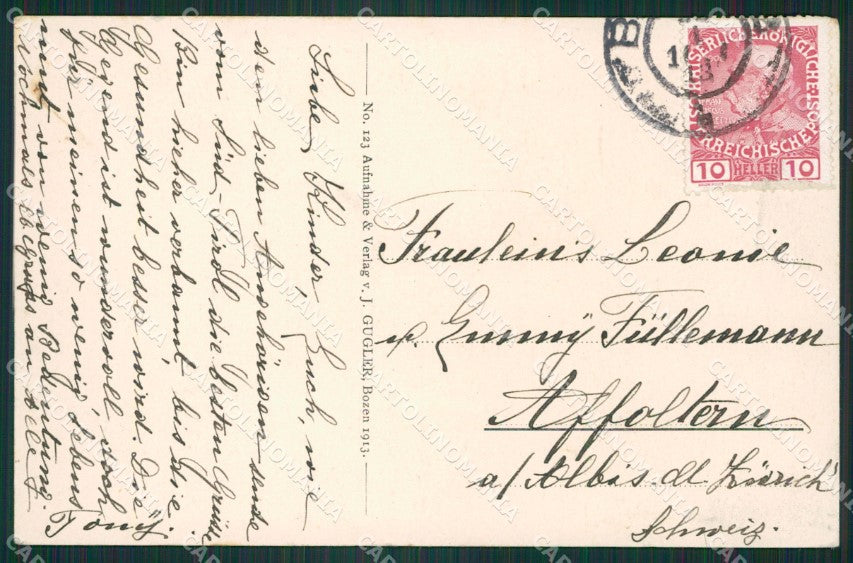 Liebe Kinder, Euch, wie
dem lieben Angehörigen sende
von Süd-Tirol die besten Grüsse
Bin hieher verbannt, bis die
Gesundheit besser wird. Die
Gegend ist wundervoll, doch
für meinen so wenig Lebens
mut von wenig Bedeutung.
Nochmals Gruss an alle
Tony.
No. 123 Aufnahme & Verlag v. J. GUGLER, Bozen 1913.
KAISERLICHE KÖNIGLICHE
ÖSTERREICHISCHE POST
10 HELLER 10
B
Fräulein's Leonie
u. Emmy Füllemann
Affoltern
a/Albis Ct Zürich
Schweiz.
CARTOLINOMANIA